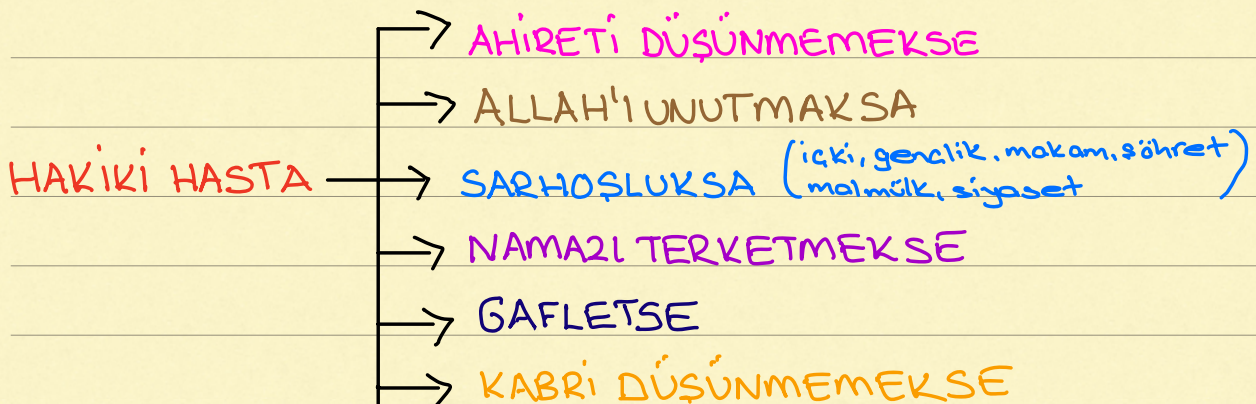 AHİRETİ DÜŞÜNMEMEKSE
ALLAH'I UNUTMAKSA
HAKİKİ HASTA
SARHOŞLUKSA (içki, gençlik, makam, şöhret
mal mülk, siyaset)
NAMAZI TERKETMEKSE
GAFLETSE
KABRİ DÜŞÜNMEMEKSE